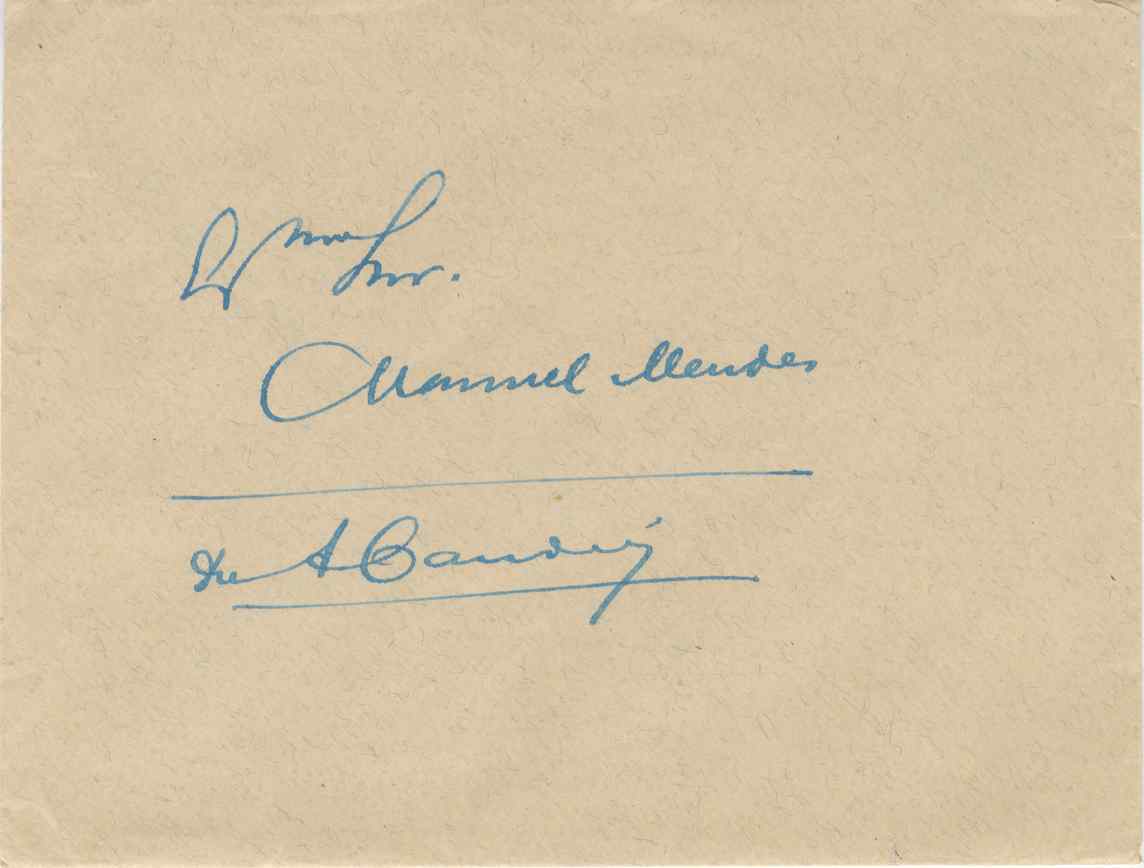 Exmo Snr.
Manuel Mendes
de A Candid